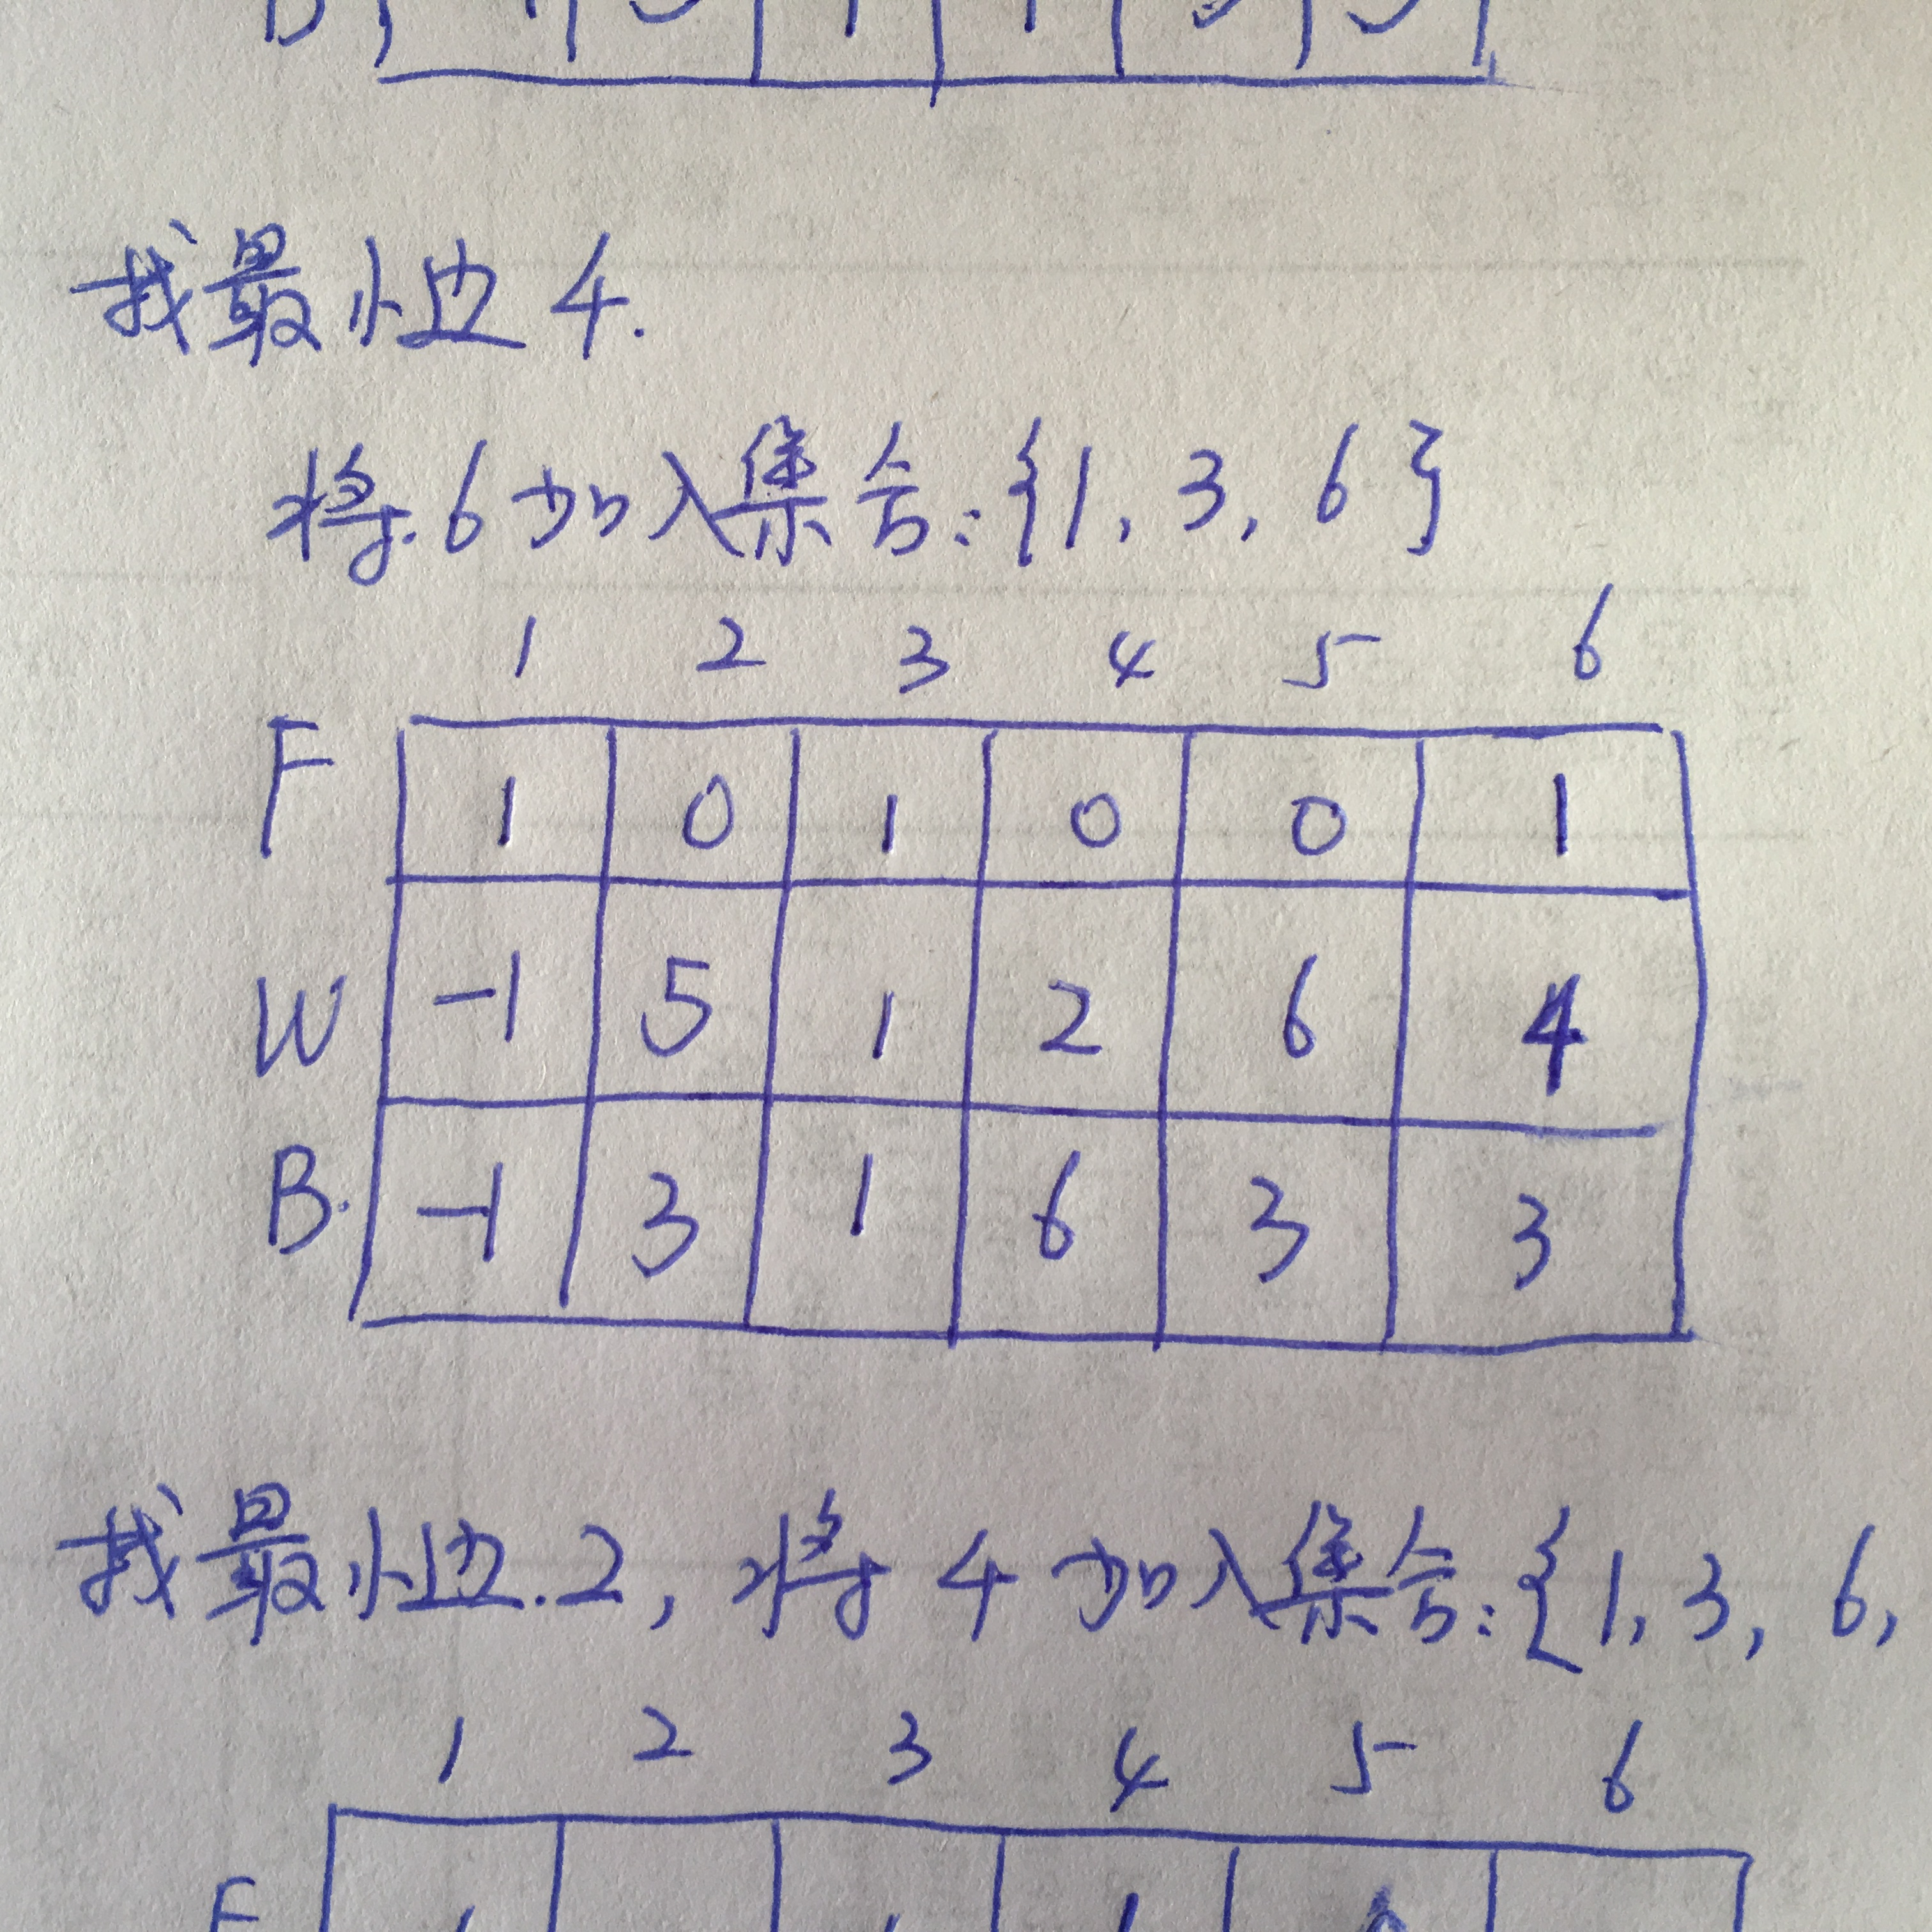 找最小边 4.
将6加入集合:{1, 3, 6}
1 2 3 4 5 6
F 1 0 1 0 0 1
W -1 5 1 2 6 4
B. -1 3 1 6 3 3
找最小边.2, 将 4 加入集合:{1, 3, 6,
1 2 3 4 5 6
F